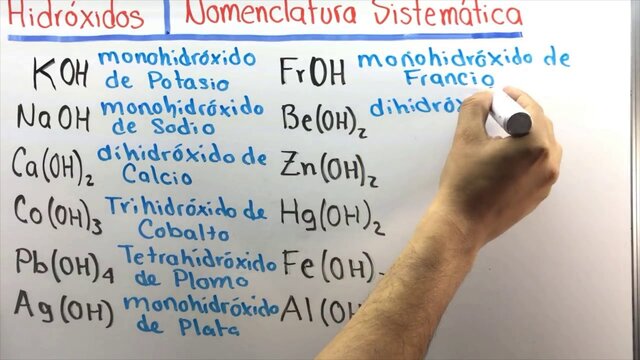 Hidróxidos | Nomenclatura Sistemática
KOH monohidróxido de Potasio
NaOH monohidróxido de Sodio
Ca(OH)₂ dihidróxido de Calcio
Co(OH)₃ Trihidróxido de Cobalto
Pb(OH)₄ Tetrahidróxido de Plomo
Ag(OH) monohidróxido de Plata
FrOH monohidróxido de Francio
Be(OH)₂ dihidró
Zn(OH)₂
Hg(OH)₂
Fe(OH)
Al(OH